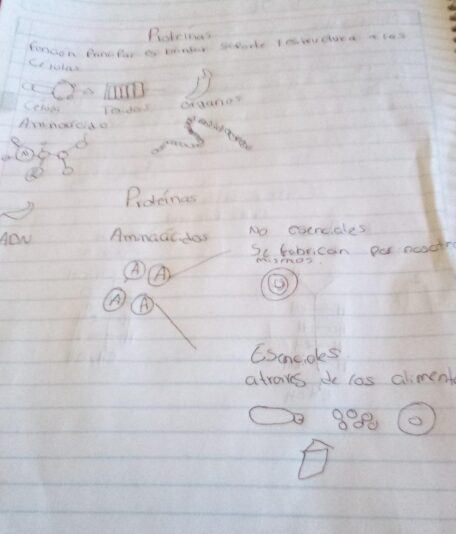 Proteinas
Funcion Principar es brindar soporte y estructura a las
Celulas
Celula Tejidos organos
Aminoacido
A
Proteinas
ADN Aminoacidos No esenciales
Se fabrican por nosotro
mismos.
A A
A A
Esenciales
atraves de los aliment